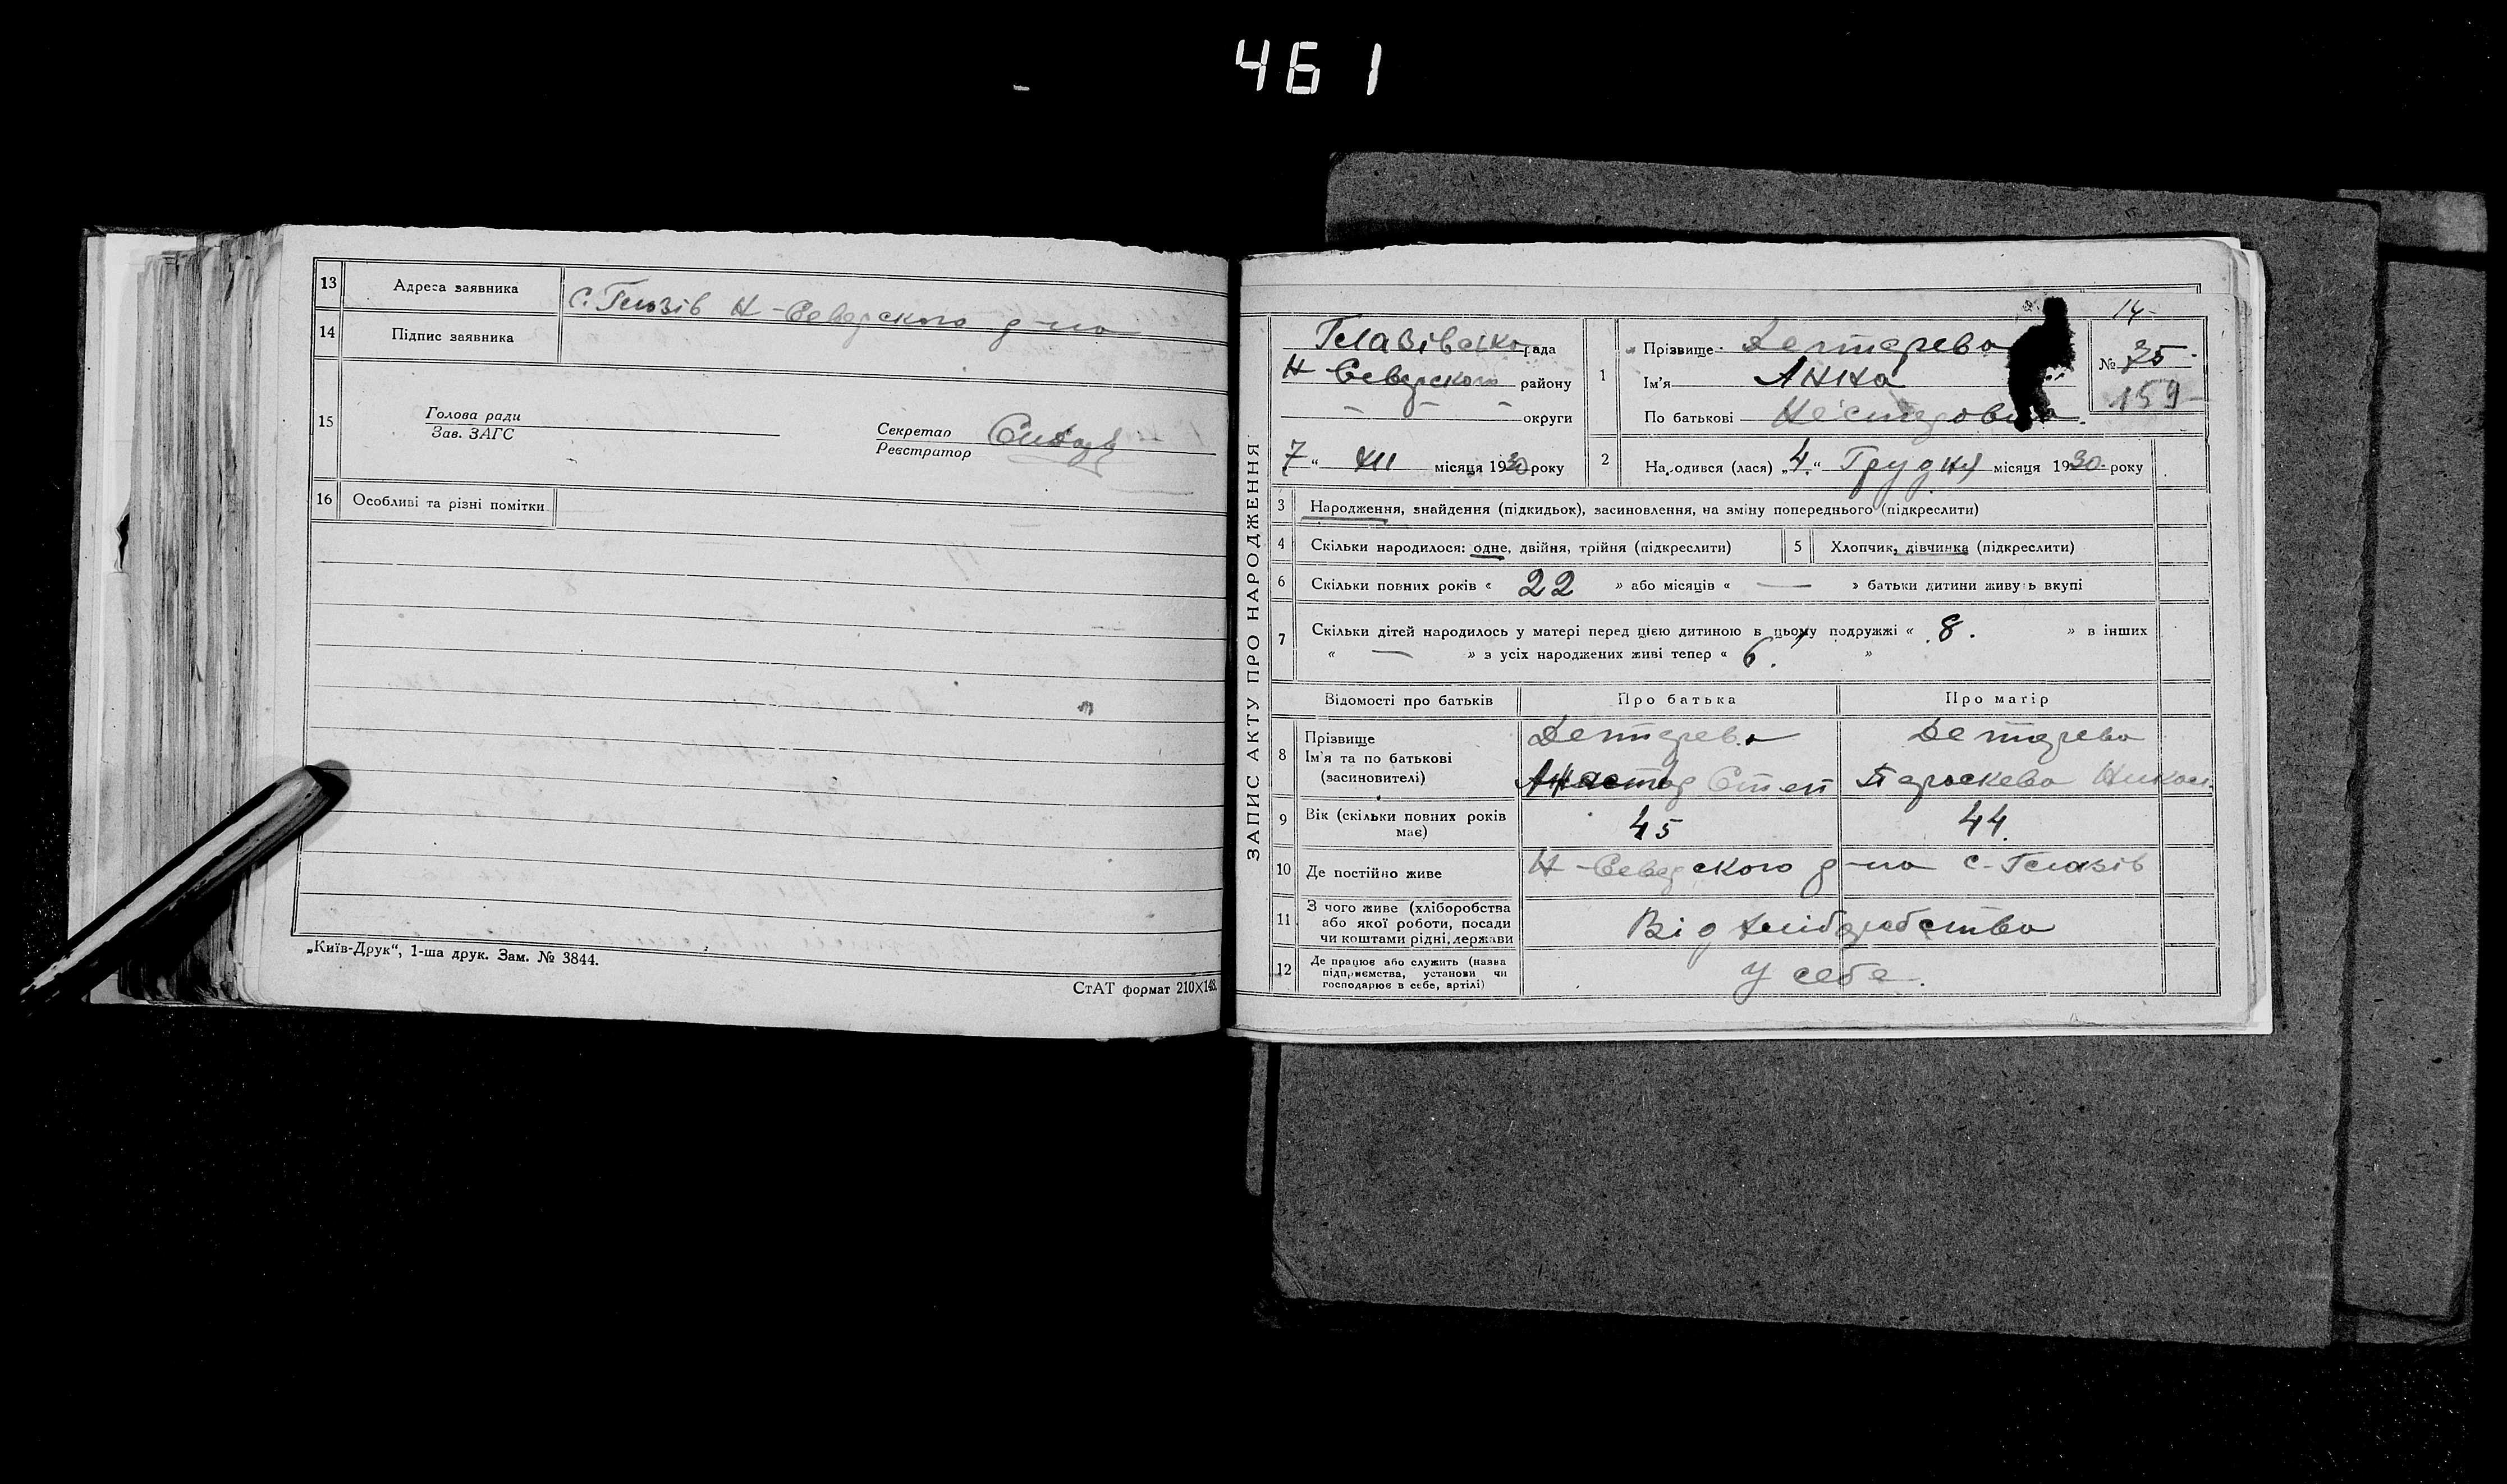 461
13 Адреса заявника с. Глазів Н-Северского р-на
14 Підпис заявника
15 Голова ради
Зав. ЗАГС
Секретар
Реєстратор
16 Особливі та різні помітки
„Київ-Друк“, 1-ша друк. Зам. № 3844.
СтАТ формат 210×148.
ЗАПИС АКТУ ПРО НАРОДЖЕННЯ
14
Глазівсько рада
Н Северского району
— — — округи
7 “ XII місяця 1930 року
1 Прізвище Дегтярева
Ім'я Анна
По батькові
№ 35
159
2 Народився (лася) „4.“ Грудня місяця 1930 року
3 Народження, знайдення (підкидьок), засиновлення, на зміну попереднього (підкреслити)
4 Скільки народилося: одне, двійня, трійня (підкреслити) 5 Хлопчик, дівчинка (підкреслити)
6 Скільки повних років « 22 » або місяців « — » батьки дитини живуть вкупі
7 Скільки дітей народилось у матері перед цією дитиною в цьому подружжі « 8. » в інших
« — » з усіх народжених живі тепер « 6. »
Відомості про батьків Про батька Про матір
8 Прізвище Дегтярева Дегтярева
Ім'я та по батькові
(засновителі) Степ Параскева Никол.
9 Вік (скільки повних років
має) 45 44
10 Де постійно живе Н-Северского р-на с-Глазів
11 З чого живе (хліборобства
або якої роботи, посади
чи коштами рідні, держави Від хліборобства
12 Де працює або служить (назва
підприємства, установи чи
господарює в себе, артілі) У себе.